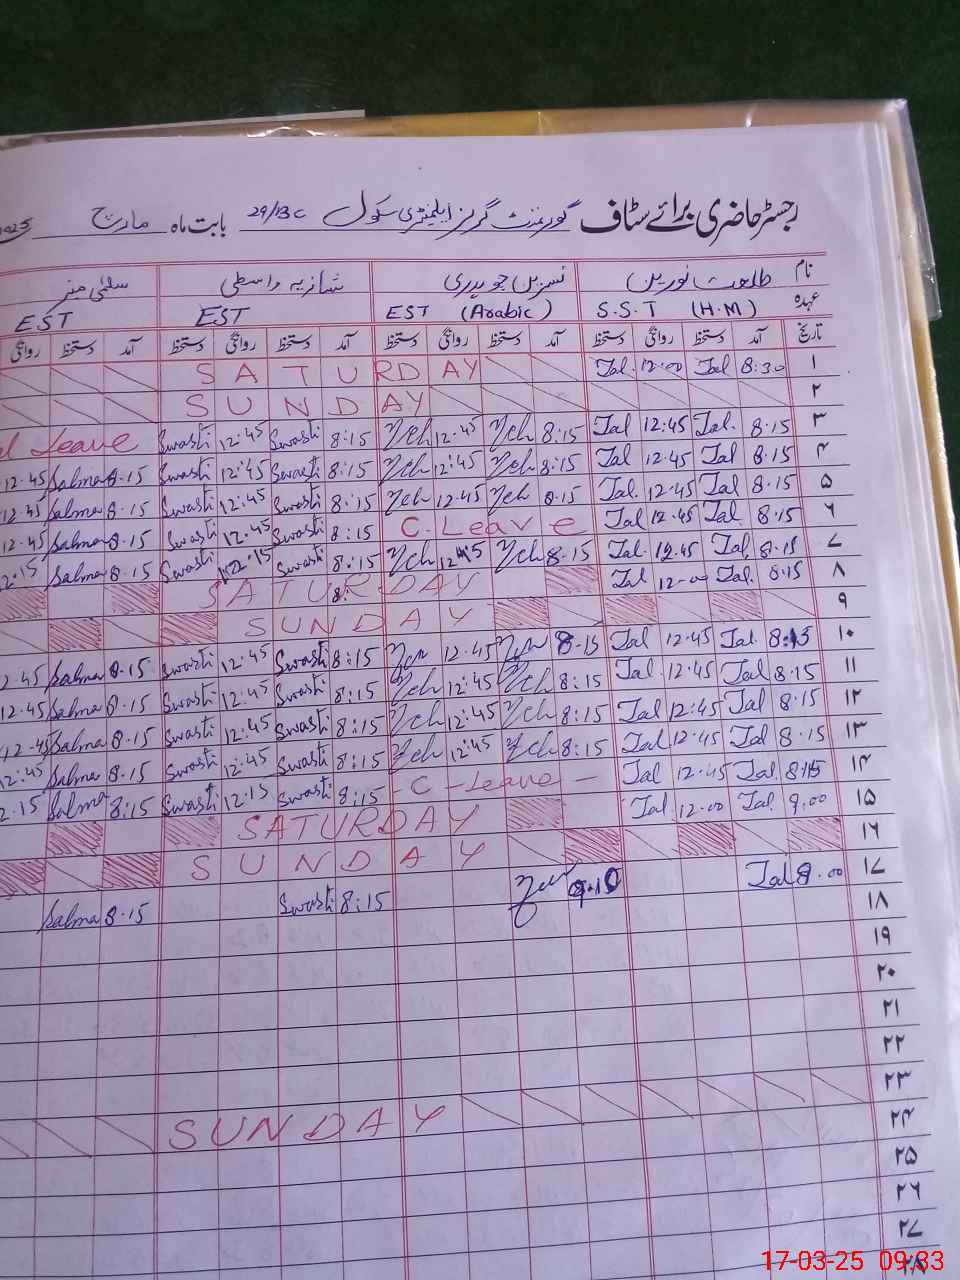 رجسٹر حاضری برائے سٹاف گورنمنٹ گرلز ایلیمنٹری سکول 29/BC بابت ماہ مارچ
نام طلعت نورین نسرین چوہدری شازیہ واسطی سلمیٰ منیر
عہدہ S.S.T (H.M) EST (Arabic) EST EST
تاریخ آمد دستخط روانگی دستخط آمد دستخط روانگی دستخط آمد دستخط روانگی دستخط آمد دستخط روانگی
SATURDAY Tal. 12:00 Tal 8:30 ۱
SUNDAY ۲
Leave Swasti 12:45 Swasti 8:15 Nch 12:45 Nch 8:15 Tal 12:45 Tal. 8:15 ۳
12.45 Salma 8.15 Swasti 12:45 Swasti 8:15 Nch 12:45 Nch 8:15 Tal 12.45 Tal 8.15 ۴
12.45 Salma 8.15 Swasti 12:45 Swasti 8:15 Nch 12.45 Nch 8.15 Tal. 12.45 Tal 8.15 ۵
12.45 Salma 8.15 Swasti 12.45 Swasti 8:15 C. Leave Tal 12.45 Tal. 8.15 ۶
2.15 Salma 8.15 Swasti 12.15 Swasti 8:15 Nch 12:45 Nch 8.15 Tal. 12.45 Tal 8.15 ۷
SATURDAY Tal 12.00 Tal. 8.15 ۸
SUNDAY ۹
2.45 Salma 8.15 Swasti 12.45 Swasti 8:15 12.45 8.15 Tal 12.45 Tal. 8:15 ۱۰
12.45 Salma 8.15 Swasti 12.45 Swasti 8:15 Nch 12:45 Nch 8:15 Tal 12.45 Tal 8.15 ۱۱
12.45 Salma 8.15 Swasti 12:45 Swasti 8:15 Nch 12:45 Nch 8:15 Tal 12.45 Tal 8.15 ۱۲
12:45 Salma 8.15 Swasti 12:45 Swasti 8:15 Nch 12:45 Nch 8:15 Tal 12.45 Tal 8.15 ۱۳
2.15 Salma 8:15 Swasti 12:15 Swasti 8:15 - C - Leave - Tal 12.45 Tal. 8:15 ۱۴
SATURDAY Tal. 12.00 Tal. 9.00 ۱۵
SUNDAY ۱۶
Salma 8.15 Swasti 8:15 Tal 8.00 ۱۷
۱۸
۱۹
۲۰
۲۱
۲۲
SUNDAY ۲۳
۲۴
۲۵
۲۶
۲۷
۲۸
17-03-25 09:33